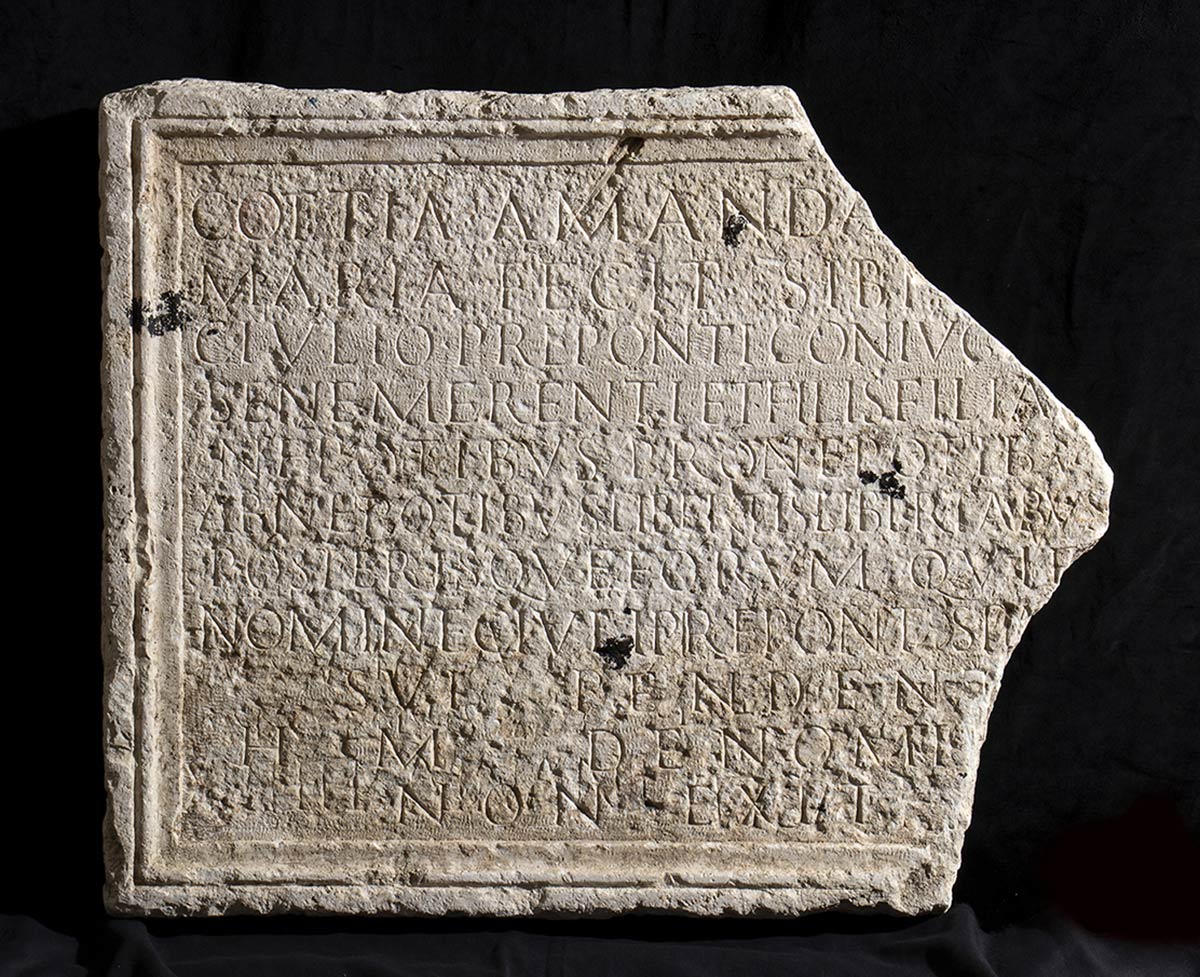 COTTIA AMANDA
MARIA FECIT SIBI
C IVLIO PREPONTI CONIVG
BENEMERENTI ET FILIIS FILIA
NEPOTIBVS PRONEPOTIBVS
ABNEPOTIBVS LIBERTIS LIBERTABVS
POSTERISQVE EORVM QVI E
NOMINE C IVLI PREPONTIS
H M DE NOMI
NON EXIT